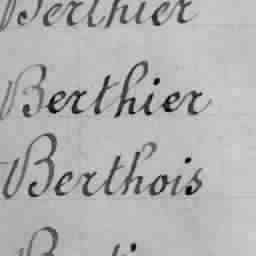 Berthier
Berthier
Berthois